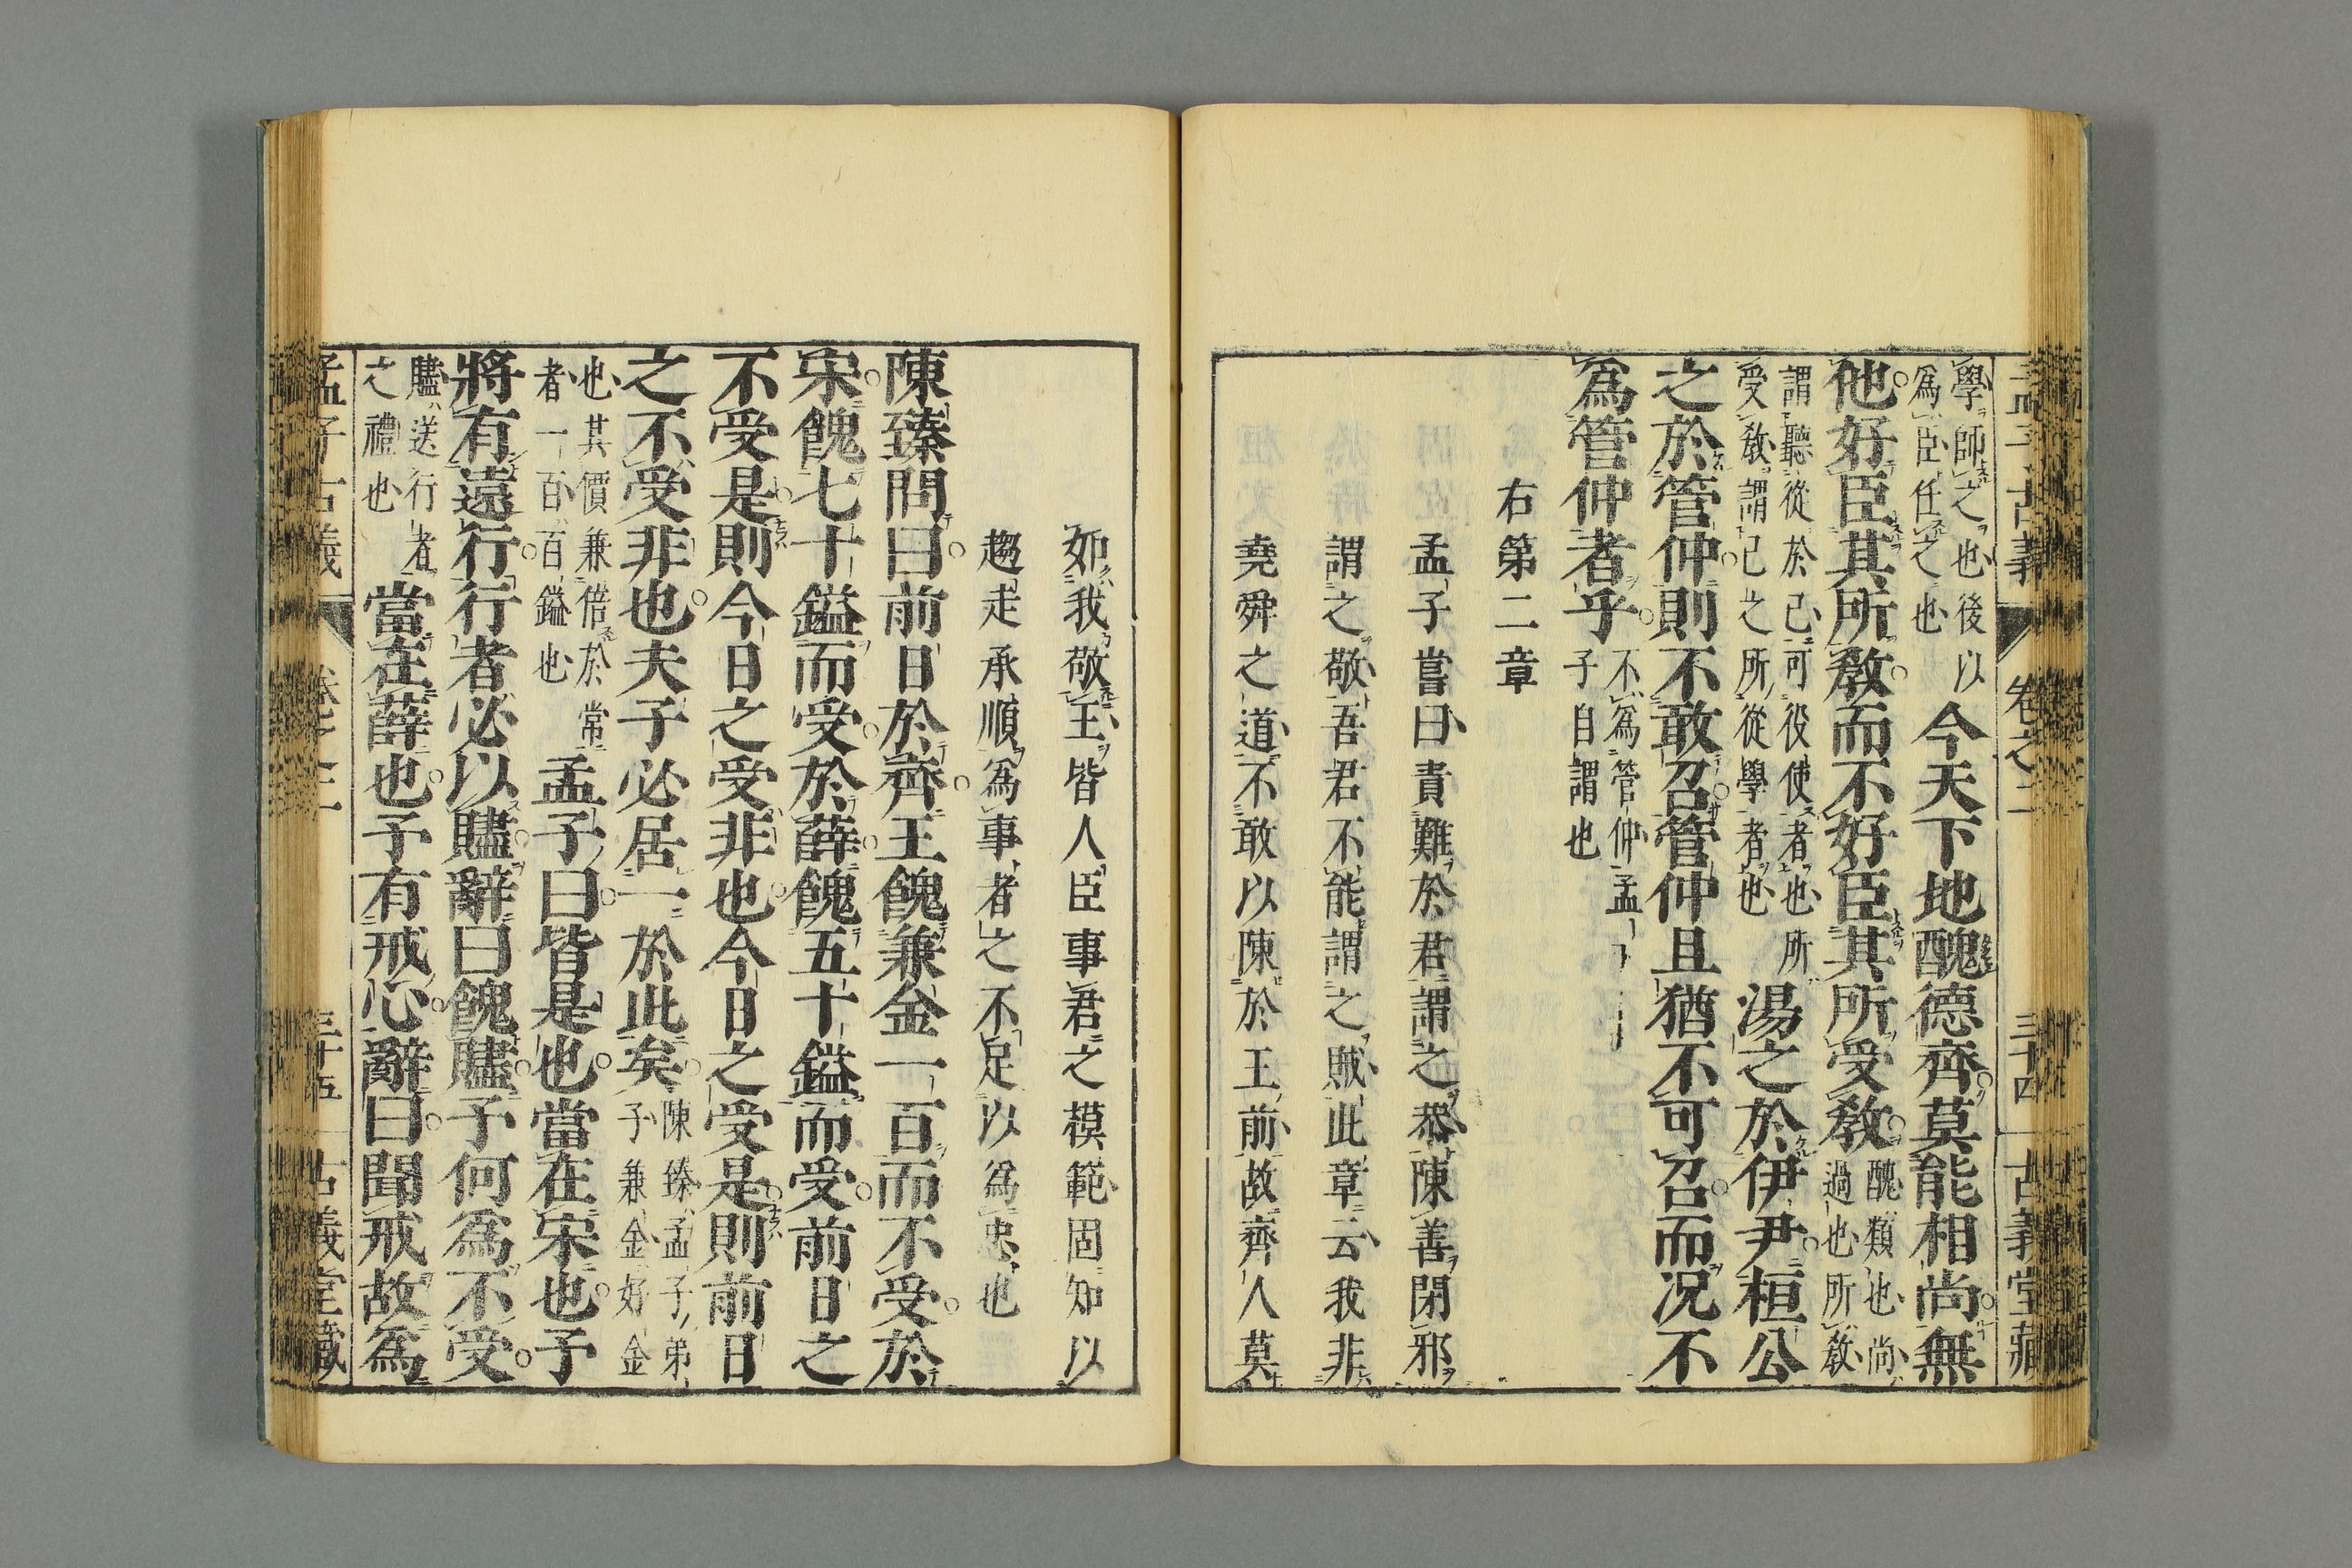 孟子古義　卷之二　三十四　古義堂藏
學師之也後以
爲臣任之也
今天下地醜德齊莫能相尚無
他好臣其所敎而不好臣其所受敎
醜類也尚
過也所敎
謂聽從於己可役使者也所
受敎謂己之所從學者也
湯之於伊尹桓公
之於管仲則不敢召管仲且猶不可召而况不
爲管仲者乎
不爲管仲孟
子自謂也
右第二章
孟子嘗曰責難於君謂之恭陳善閉邪
謂之敬吾君不能謂之賊此章云我非
堯舜之道不敢以陳於王前故齊人莫
如我敬王皆人臣事君之模範固知以
趨走承順爲事者之不足以爲忠也
陳臻問曰前日於齊王餽兼金一百而不受於
宋餽七十鎰而受於薛餽五十鎰而受前日之
不受是則今日之受非也今日之受是則前日
之不受非也夫子必居一於此矣
陳臻孟子弟
子兼金好金
也其價兼倍於常
者一百百鎰也
孟子曰皆是也當在宋也予
將有遠行行者必以贐辭曰餽贐予何爲不受
贐送行者
之禮也
當在薛也予有戒心辭曰聞戒故爲
孟子古義　卷之二　三十五　古義堂藏